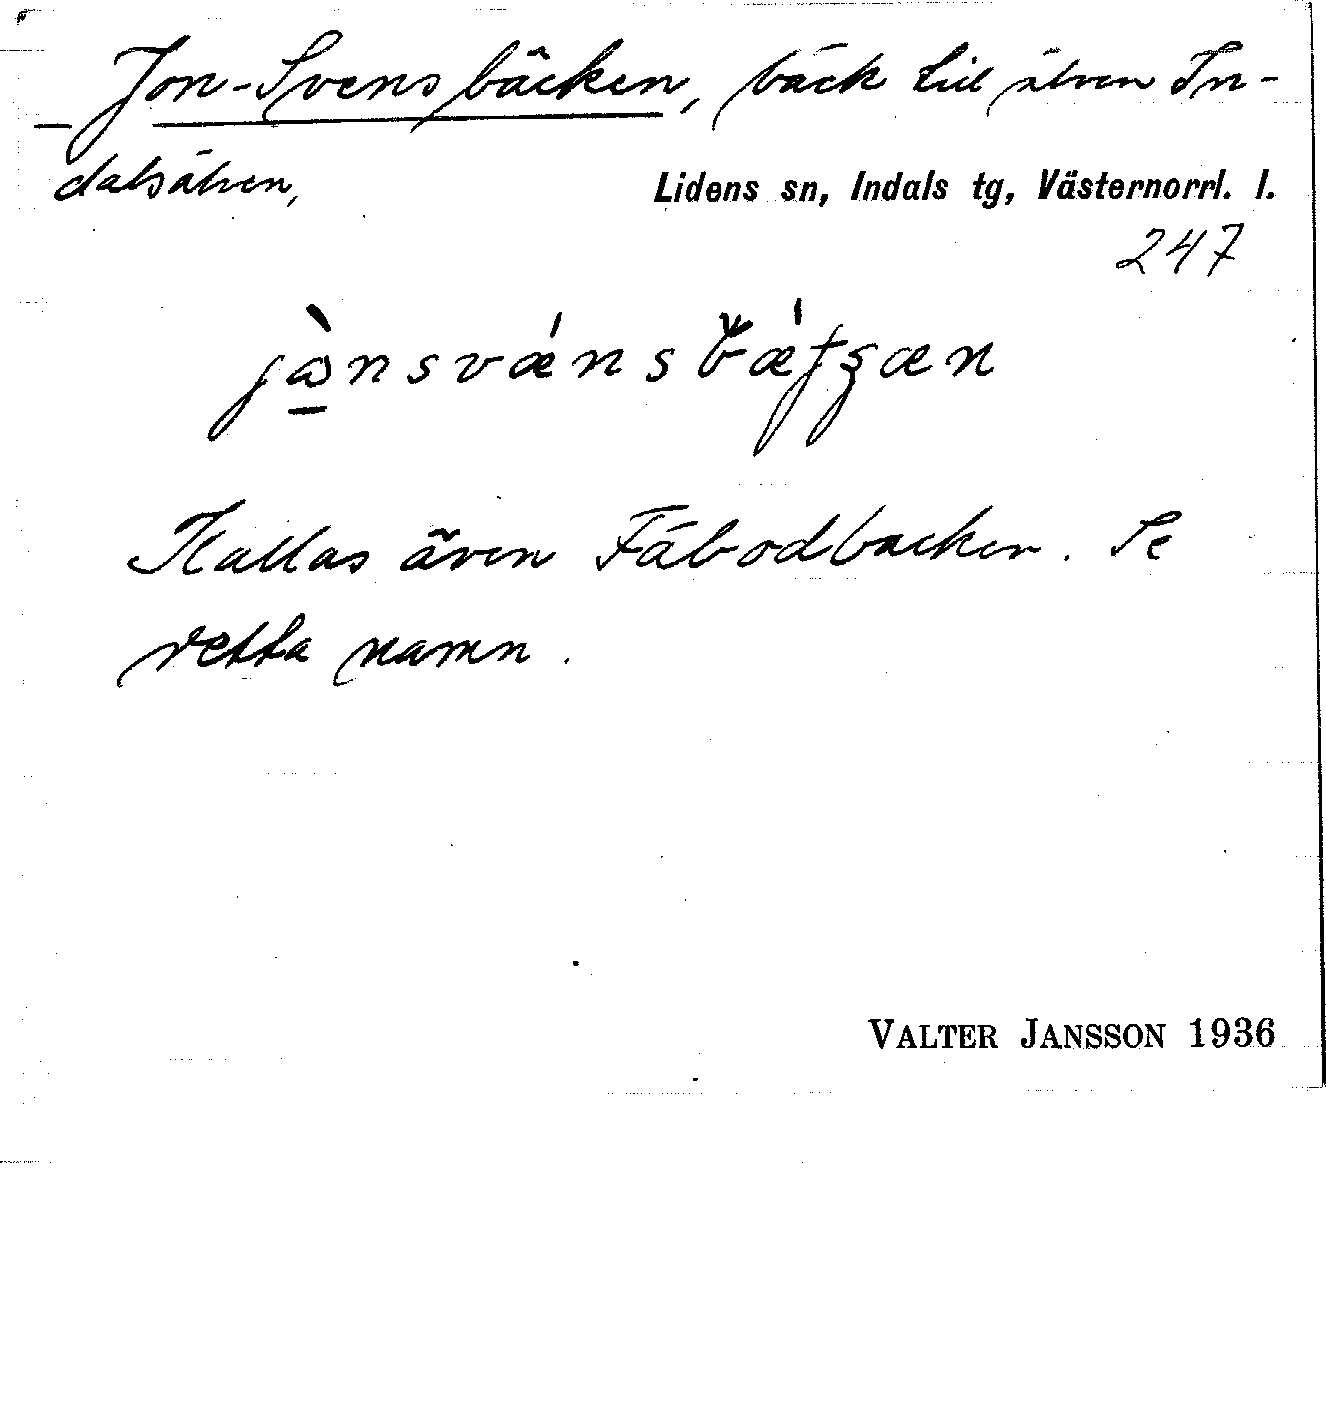 Jon-Svensbäcken, bäck till älven In-
dalsälven,
Lidens sn, Indals tg, Västernorrl. l.
247
Kallas även Fäbodbäcken. Se
detta namn.
VALTER JANSSON 1936